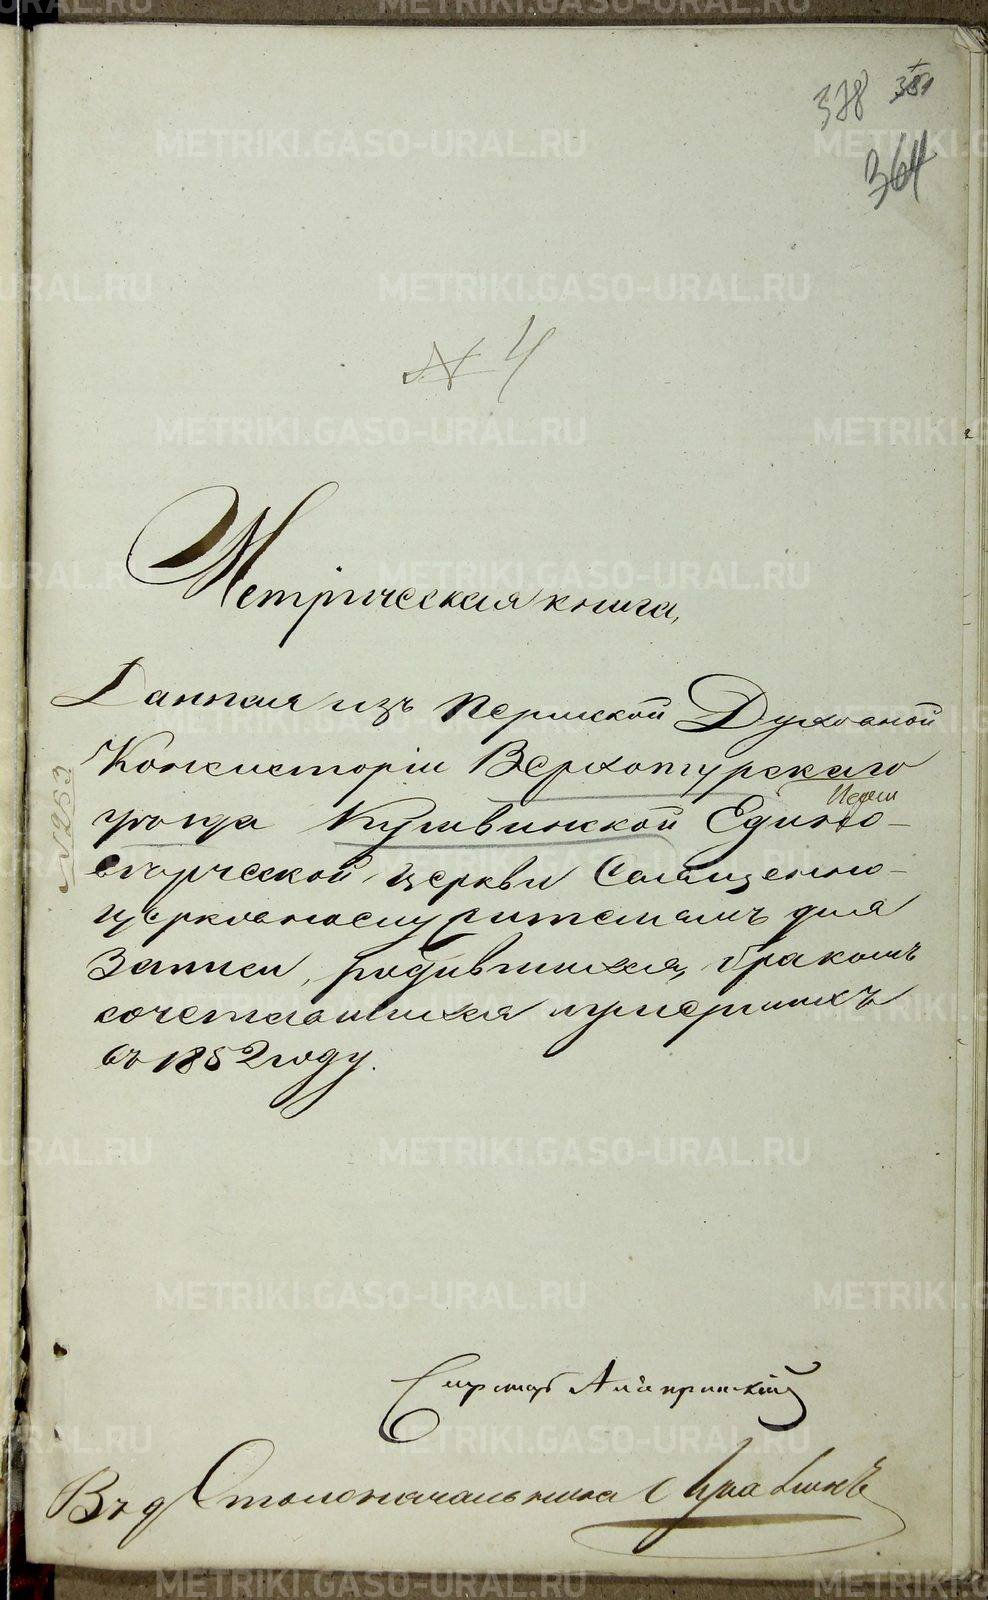 378 381
364
№ 4
Метрическая книга,
Данная изъ Пермской Духовной
Консисторіи Верхотурскаго
уѣзда Кушвинской Едино-
вѣрческой церкви Священно-
церковнослужителямъ для
Записи, родившихся, бракомъ
сочетавшихся и умершихъ
въ 1852 году.
№ 263
Секретарь
Въ д Столоначальника
METRIKI.GASO-URAL.RU